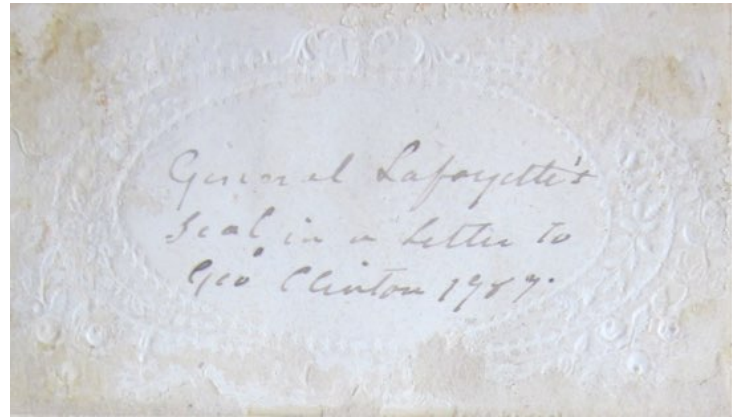 General Lafayette's
Seal in a letter to
Geo Clinton 1787.